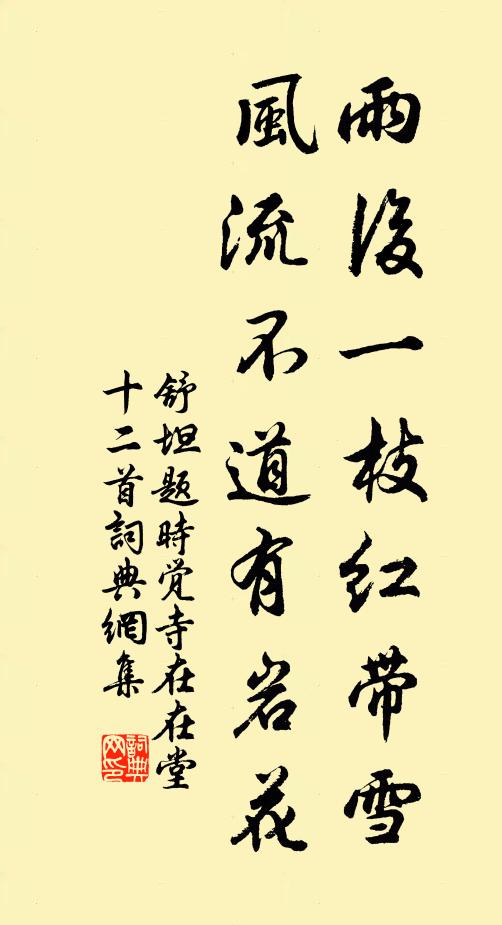 雨後一枝红带雪
風流不道有岩花
舒坦题時觉寺在在堂
十二首詞典網集
詞典网印